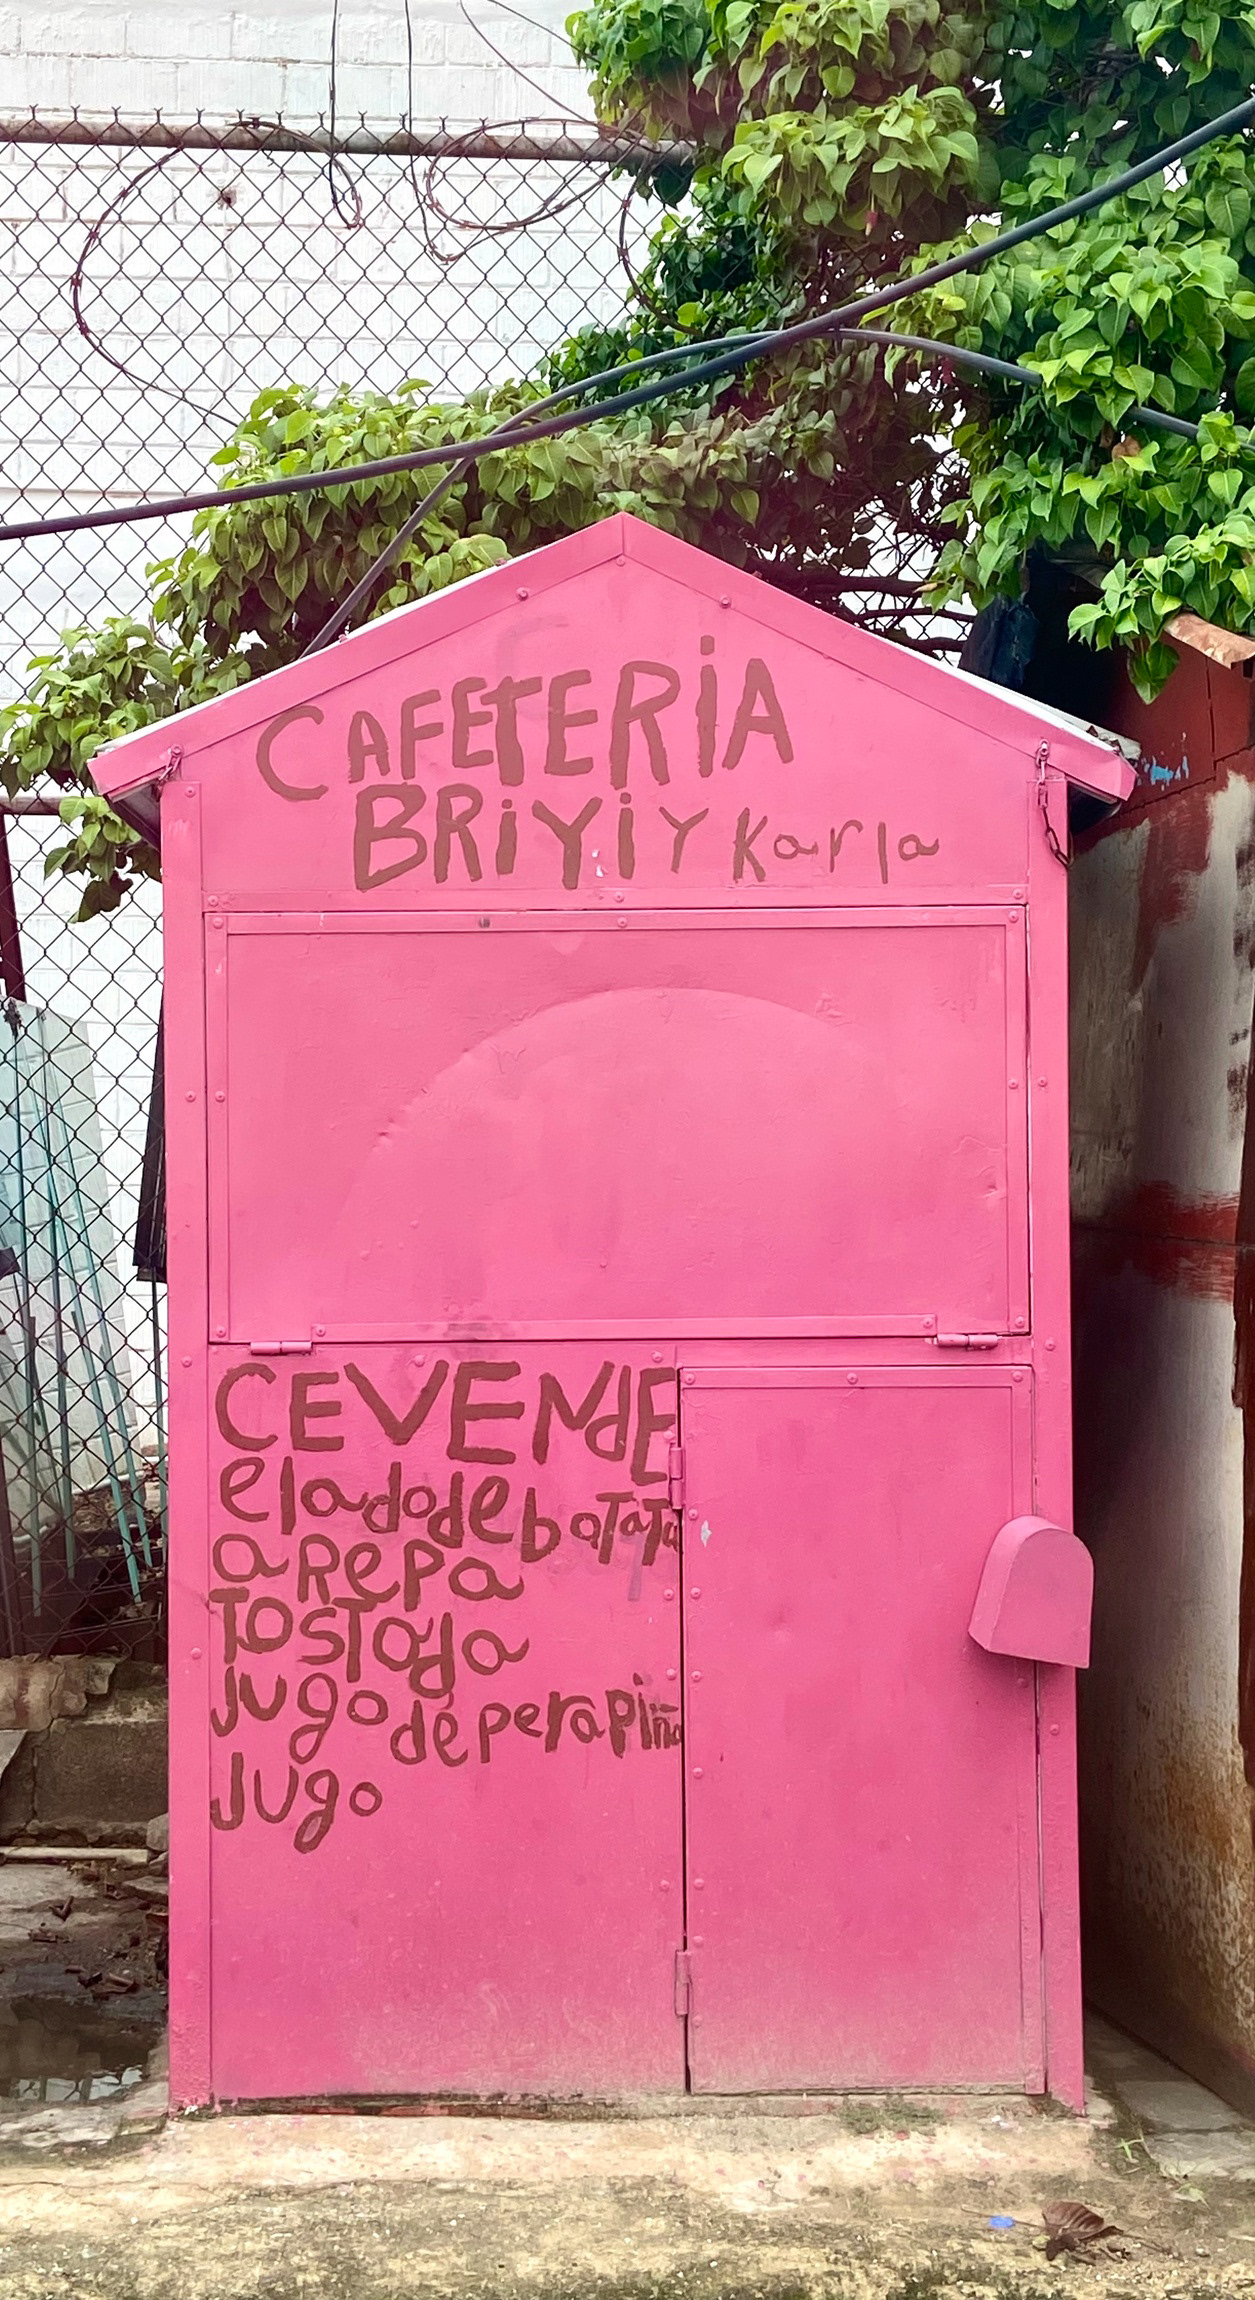 CAFETERiA
BRiYiY Karla
CEVENdE
eladodebaTaTa
aRepa
TOSTada
Jugo de pera piña
Jugo